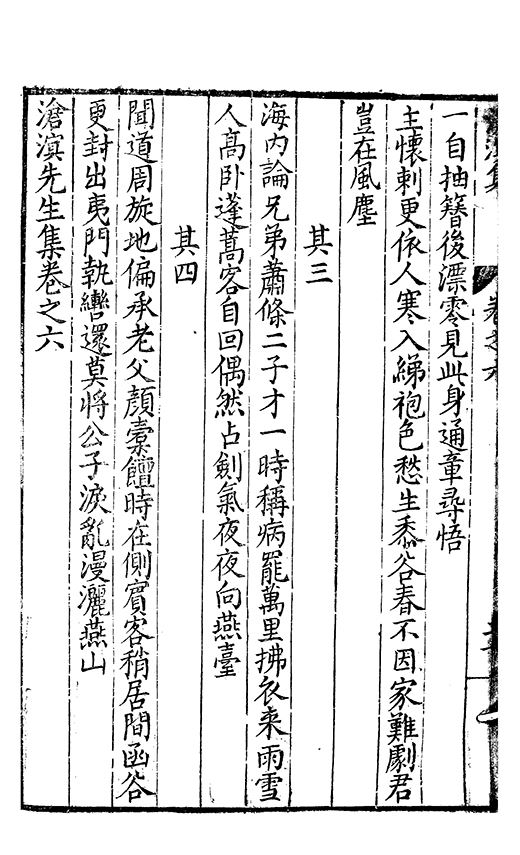 一自抽簪後漂零見此身通章尋悟
主懷刺更依人寒入綈袍色愁生黍谷春不因家難劇君
豈在風塵
其三
海內論兄弟蕭條二子才一時稱病罷萬里拂衣來雨雪
人高臥蓬蒿客自回偶然占劍氣夜夜向燕臺
其四
聞道周旋地偏承老父顏橐饘時在側賓客稍居間函谷
更封出夷門執轡還莫將公子淚亂漫灑燕山
滄溟先生集卷之六